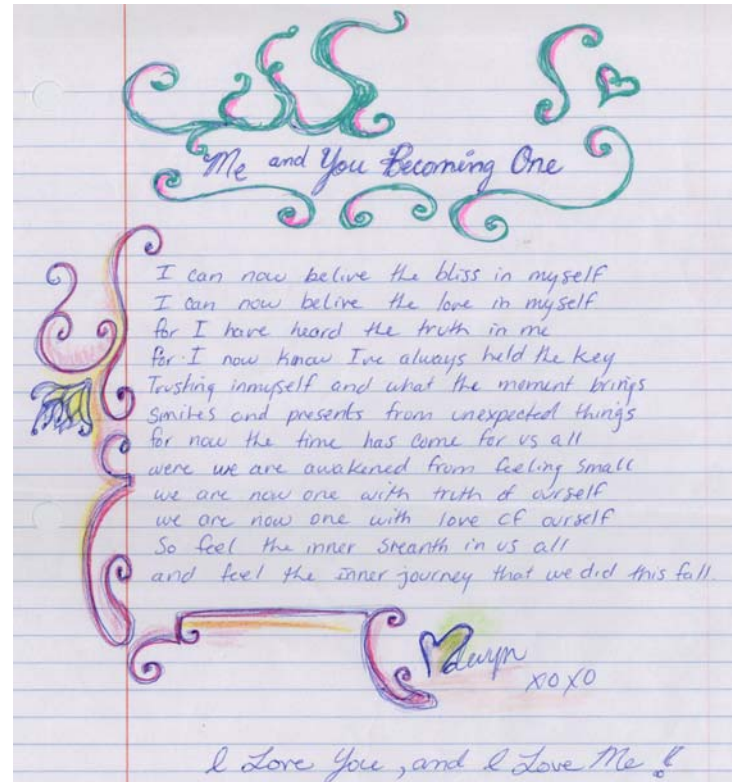 Me and You Becoming One
I can now belive the bliss in myself
I can now belive the love in myself
for I have heard the truth in me
for I now know Ive always held the key
Trusting inmyself and what the moment brings
smiles and presents from unexpected things
for now the time has come for us all
were we are awakened from feeling small
we are now one with truth of ourself
we are now one with love of ourself
So feel the inner streanth in us all
and feel the inner journey that we did this fall.
xoxo
I Love You, and I Love Me!!